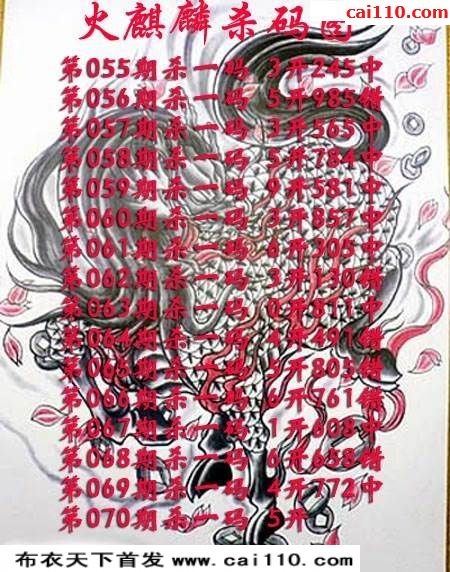 cai110.com
火麒麟杀码
第055期杀一码 3开245中
第056期杀一码 5开985错
第057期杀一码 3开565中
第058期杀一码 5开784中
第059期杀一码 9开581中
第060期杀一码 3开857中
第061期杀一码 6开
第062期杀一码 3开130错
第063期杀一码 0开811中
第064期杀一码 4开491错
第065期杀一码 5开805错
第066期杀一码 6开761错
第067期杀一码 1开608中
第068期杀一码 6开658错
第069期杀一码 4开772中
第070期杀一码 5开
布衣天下首发 www.cai110.com